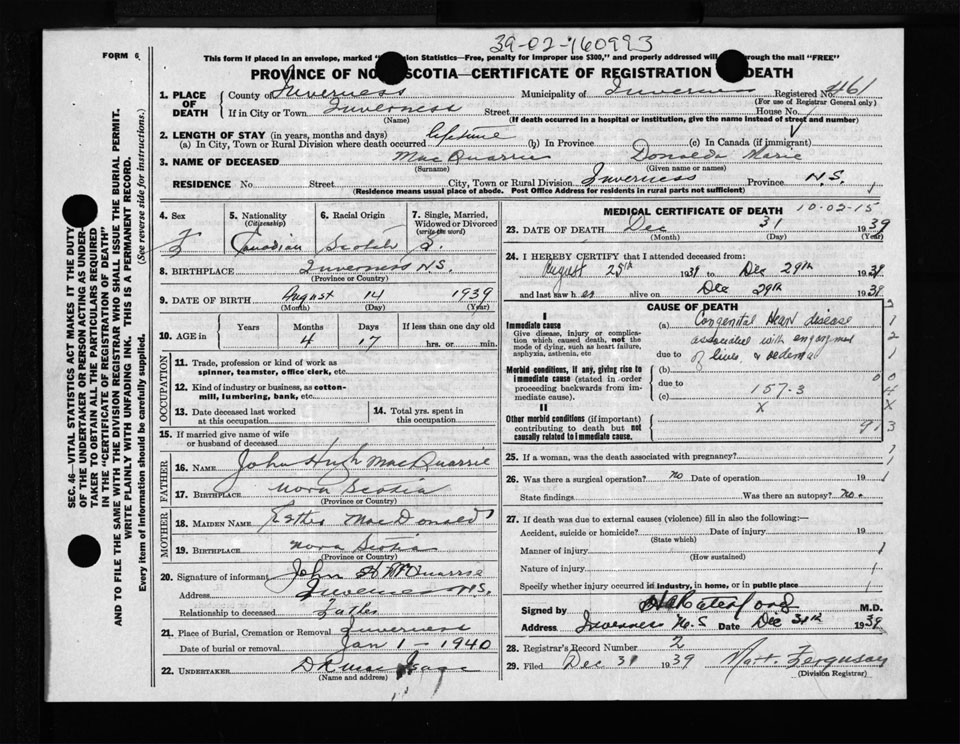 39-02-160993
FORM 6
This form if placed in an envelope, marked "ion Statistics—Free, penalty for improper use $300," and properly addressed will through the mail "FREE"
PROVINCE OF NO SCOTIA—CERTIFICATE OF REGISTRATION DEATH
1. PLACE OF DEATH County of Inverness Municipality of Inverness Registered No. 461
(For use of Registrar General only)
If in City or Town Inverness Street House No.
(Name) (If death occurred in a hospital or institution, give the name instead of street and number)
2. LENGTH OF STAY (in years, months and days)
(a) In City, Town or Rural Division where death occurred lifetime (b) In Province (c) In Canada (if immigrant)
3. NAME OF DECEASED MacQuarrie Donalda Marie
(Surname) (Given name or names)
RESIDENCE No. Street City, Town or Rural Division Inverness Province N.S. 1
(Residence means usual place of abode. Post Office Address for residents in rural parts not sufficient)
4. Sex 5. Nationality (Citizenship) 6. Racial Origin 7. Single, Married, Widowed or Divorced (write the word)
F Canadian Scotch S.
8. BIRTHPLACE Inverness N.S.
(Province or Country)
9. DATE OF BIRTH August 14 1939
(Month) (Day) (Year)
10. AGE in Years Months Days If less than one day old
4 17 hrs. or min.
OCCUPATION
11. Trade, profession or kind of work as spinner, teamster, office clerk, etc.
12. Kind of industry or business, as cotton-mill, lumbering, bank, etc.
13. Date deceased last worked at this occupation
14. Total yrs. spent in this occupation
15. If married give name of wife or husband of deceased
FATHER
16. NAME John Hugh MacQuarrie
17. BIRTHPLACE Nova Scotia
(Province or Country)
MOTHER
18. MAIDEN NAME Esther MacDonald
19. BIRTHPLACE Nova Scotia
(Province or Country)
20. Signature of informant John H McQuarrie
Address Inverness N.S.
Relationship to deceased Father
21. Place of Burial, Cremation or Removal Inverness
Date of burial or removal Jan 1 - 1940
22. UNDERTAKER
(Name and address)
MEDICAL CERTIFICATE OF DEATH 10-02-15
23. DATE OF DEATH Dec 31 1939
(Month) (Day) (Year)
24. I HEREBY CERTIFY that I attended deceased from:
August 25th 1939 to Dec 29th 1939
and last saw h er alive on Dec 29th 1939
CAUSE OF DEATH
I
Immediate cause
Give disease, injury or complication which caused death, not the mode of dying, such as heart failure, asphyxia, asthenia, etc
(a) Congenital Heart disease
associated with
due to of liver & oedema
Morbid conditions, if any, giving rise to immediate cause (stated in order proceeding backwards from immediate cause).
(b)
due to
(c) 157-3
X
II
Other morbid conditions (if important) contributing to death but not causally related to immediate cause.
25. If a woman, was the death associated with pregnancy?
26. Was there a surgical operation? no Date of operation 19
State findings Was there an autopsy? no.
27. If death was due to external causes (violence) fill in also the following:—
Accident, suicide or homicide? Date of injury 19
(State which)
Manner of injury
(How sustained)
Nature of injury
Specify whether injury occurred in industry, in home, or in public place
Signed by M.D.
Address Inverness N.S Date Dec 31th 1939
28. Registrar's Record Number 2
29. Filed Dec 31 1939 Matt. Ferguson
(Division Registrar)
SEC. 46—VITAL STATISTICS ACT MAKES IT THE DUTY
OF THE UNDERTAKER OR PERSON ACTING AS UNDER-
TAKER TO OBTAIN ALL THE PARTICULARS REQUIRED
IN THE "CERTIFICATE OF REGISTRATION OF DEATH"
AND TO FILE THE SAME WITH THE DIVISION REGISTRAR WHO SHALL ISSUE THE BURIAL PERMIT.
WRITE PLAINLY WITH UNFADING INK. THIS IS A PERMANENT RECORD.
Every item of information should be carefully supplied. (See reverse side for instructions.)